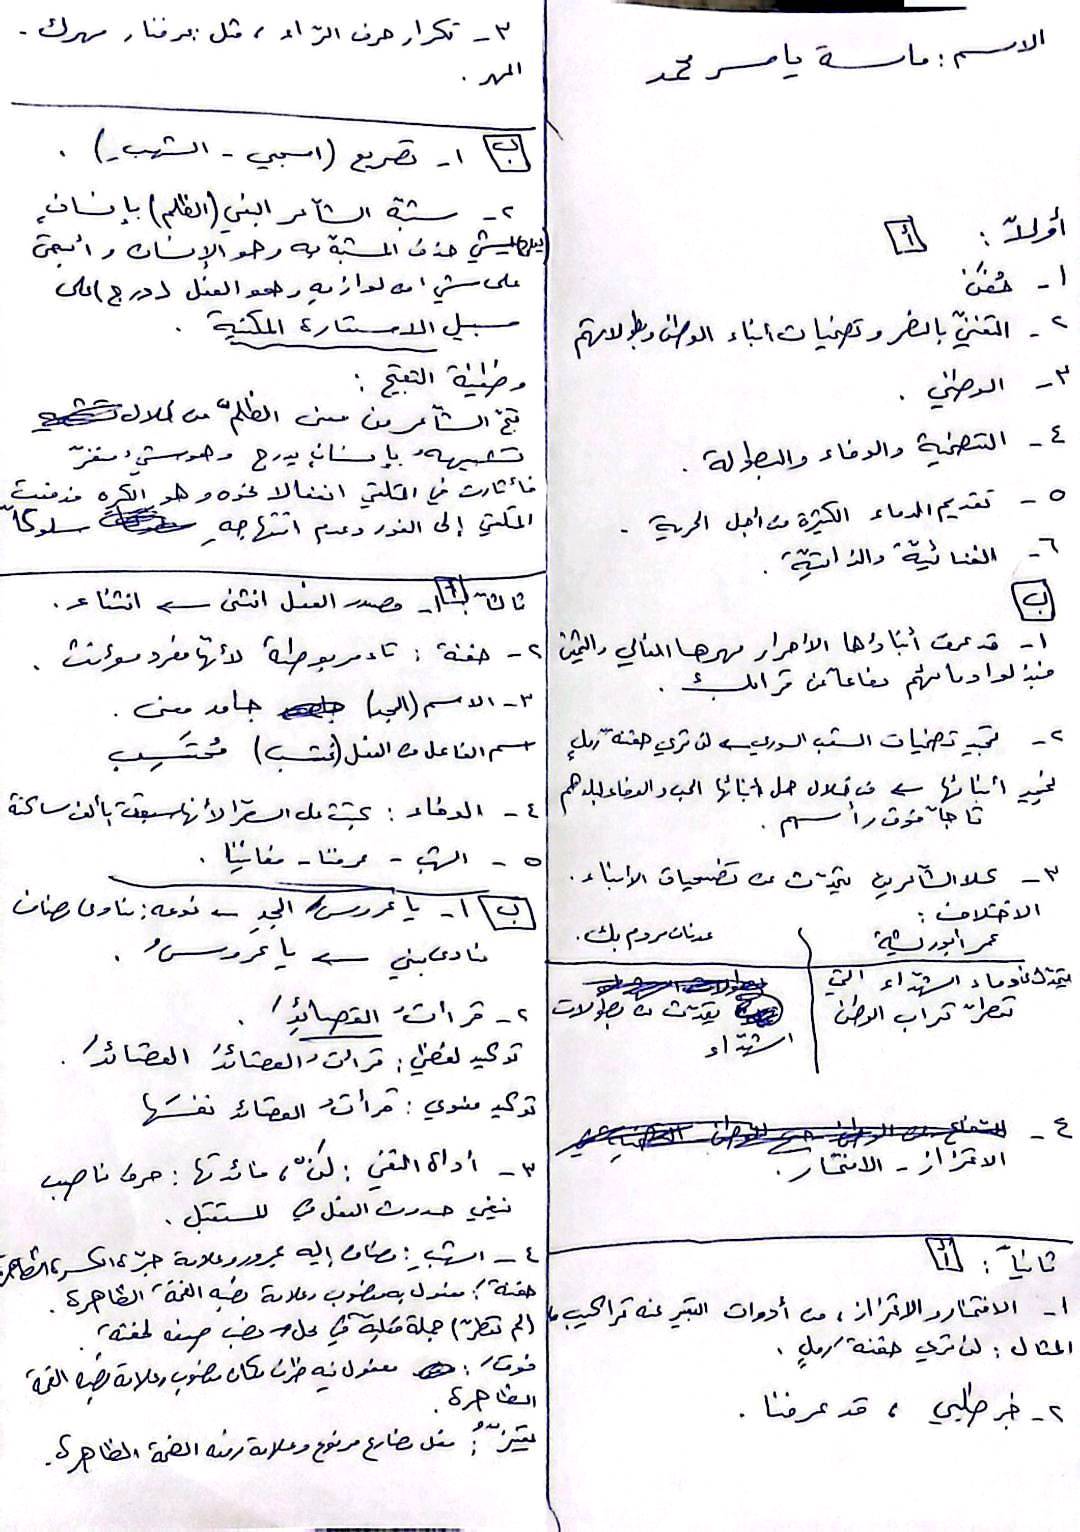 الاسم: ماسة ياسر محمد
أولاً: أ
١- حُفَن
٢- التغنّي بالنصر وتضحيات أبناء الوطن وبطولاتهم
٣- الوطني .
٤- التضحية والوفاء والبطولة .
٥- تقديم الدماء الكثيرة من أجل الحرية .
٦- الغنائيّة والذاتيّة .
ب
١- قد عرف أبناؤها الأحرار مهرها الغالي والثمين
فبذلوا دمائهم دفاعاً عن ترابك .
٢- تمجيد تضحيات الشعب السوري ← لن تري حفنة رملٍ
تمجيد أبنائها ← من خلال حمل أبنائها الحب والوفاء لبلدهم
تاجاً فوق رأسهم .
٣- كلا الشاعرين تحدّث عن تضحيات الأبناء .
الاختلاف :
عمر أبو ريشة
عدنان مردم بك .
دماء الشهداء التي
تعطرّ تراب الوطن
يتحدّث عن بطولات
الشهداء
٤-
الاعتزاز - الافتخار .
ثانياً : أ
١- الافتخار والاعتزاز ، من أدوات التعبير عنه تراكيب
المثال : لن تري حفنة رملٍ .
٢- خبر طلبي ، قد عرفنا .
٣- تكرار حرف الرّاء ، مثل عرفنا ، مهرك -
المهر .
ب ١- تصريع (اسحبي - الشهب) .
٢- شبّه الشاعر البغي (الظلم) بإنسانٍ
يمشي حذف المشبّه به وهو الإنسان وأبقى
على شيء من لوازمه وهو الفعل (درج) على
سبيل الاستعارة المكنية .
وظيفة التقبيح :
قبّح الشاعر من معنى الظلم من خلال
تشبيهه بإنسانٍ يدرج وهو شيء منفرّ
فأثارت في المتلقي انفعالا نحوه وهو الكره فدفعت
المتلقي إلى النفور وعدم انتهاجهِ سلوكاً
ثالثاً أ ١- مصدر الفعل انثنى ← انثناء .
٢- حفنة : تاء مربوطة لأنها مفرد مؤنث .
٣- الاسم (المجد) جامد معنى .
اسم الفاعل من الفعل (تحتسب) مُحتَسِب
٤- الوفاء : كتبت على السطر لأنها سبقت بألف ساكنة
٥- الشهب - عرفنا - مغانينا .
ب ١- يا عروسَ المجدِ ← نوعه : منادى مضاف
منادى مبني ← يا عروسُ .
٢- قرأتُ القصائدَ .
توكيد لفظي : قرأتُ القصائدَ القصائدَ .
توكيد معنوي : قرأتُ القصائد نفسَها
٣- أداة النفي : لن ، فائدتها : حرف ناصب
نفي حدوث الفعل في المستقبل .
٤- الشهبِ : مضاف إليه مجرور وعلامة جرّه الكسرة الظاهرة
حفنةَ : مفعول به منصوب وعلامة نصبه الفتحة الظاهرة .
(لم تعطرّ) جملة فعلية في محل نصب صفة لحفنة .
فوقَ : مفعول فيه ظرف مكان منصوب وعلامة نصبه الفتحة
الظاهرة .
: فعل مضارع مرفوع وعلامة رفعه الضمة الظاهرة .